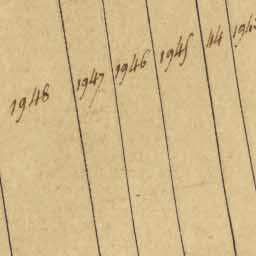 1948 1947 1946 1945 44